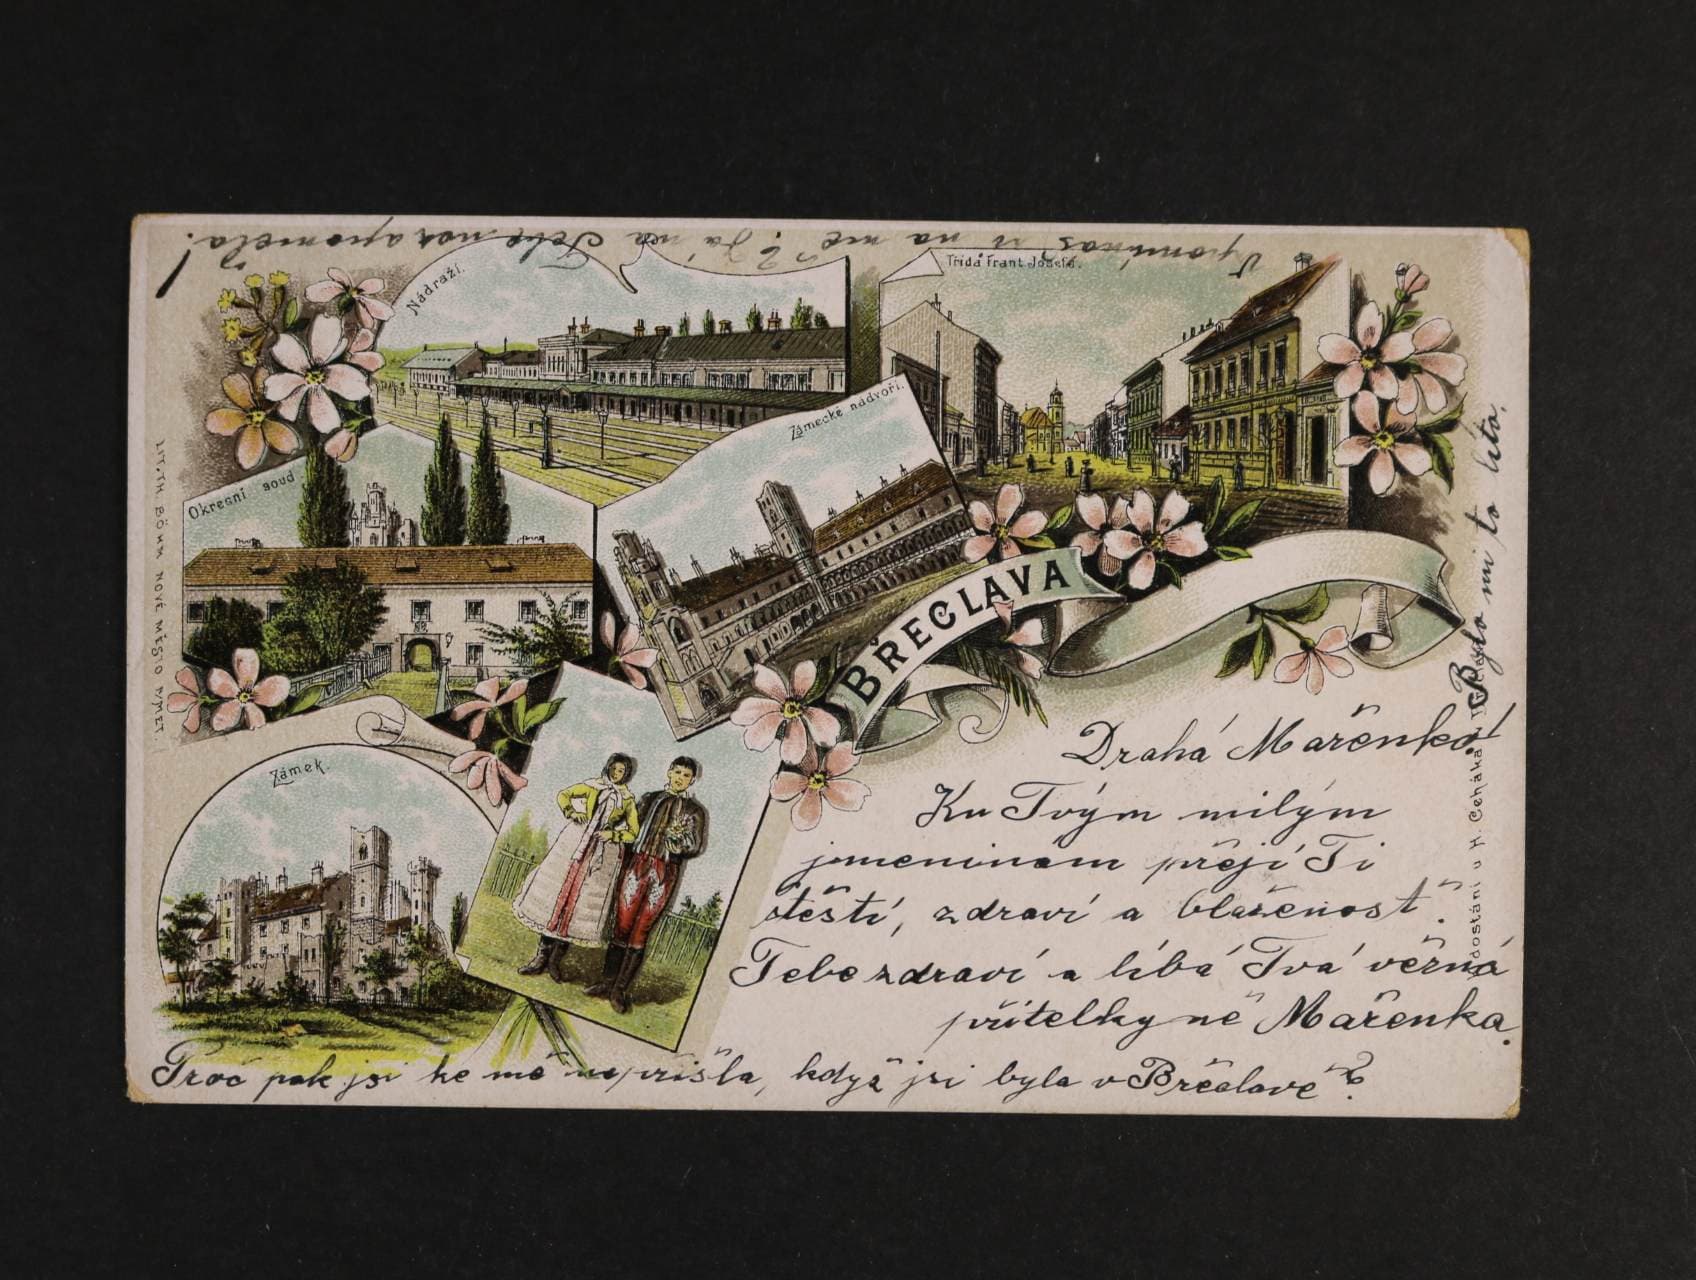 Nádraží.
Třída Frant. Josefa.
Zámecké nádvoří.
Okresní soud
BŘECLAVA
Zámek.
LIT. TH. BÖHM NOVÉ MĚSTO N/MET.
dostání u H. Čeháka
Drahá Mařenko!
Ku Tvým milým
jmeninám přeji Ti
štěstí, zdraví a blaženost.
Tebe zdraví a líbá Tvá věrná
přítelkyně Mařenka.
Proč pak jsi ke mě nepřišla, když jsi byla v Břeclavě?
Bylo mi to líto.
Vpomínáš si na mě? Já na Tebe nezapoměla!